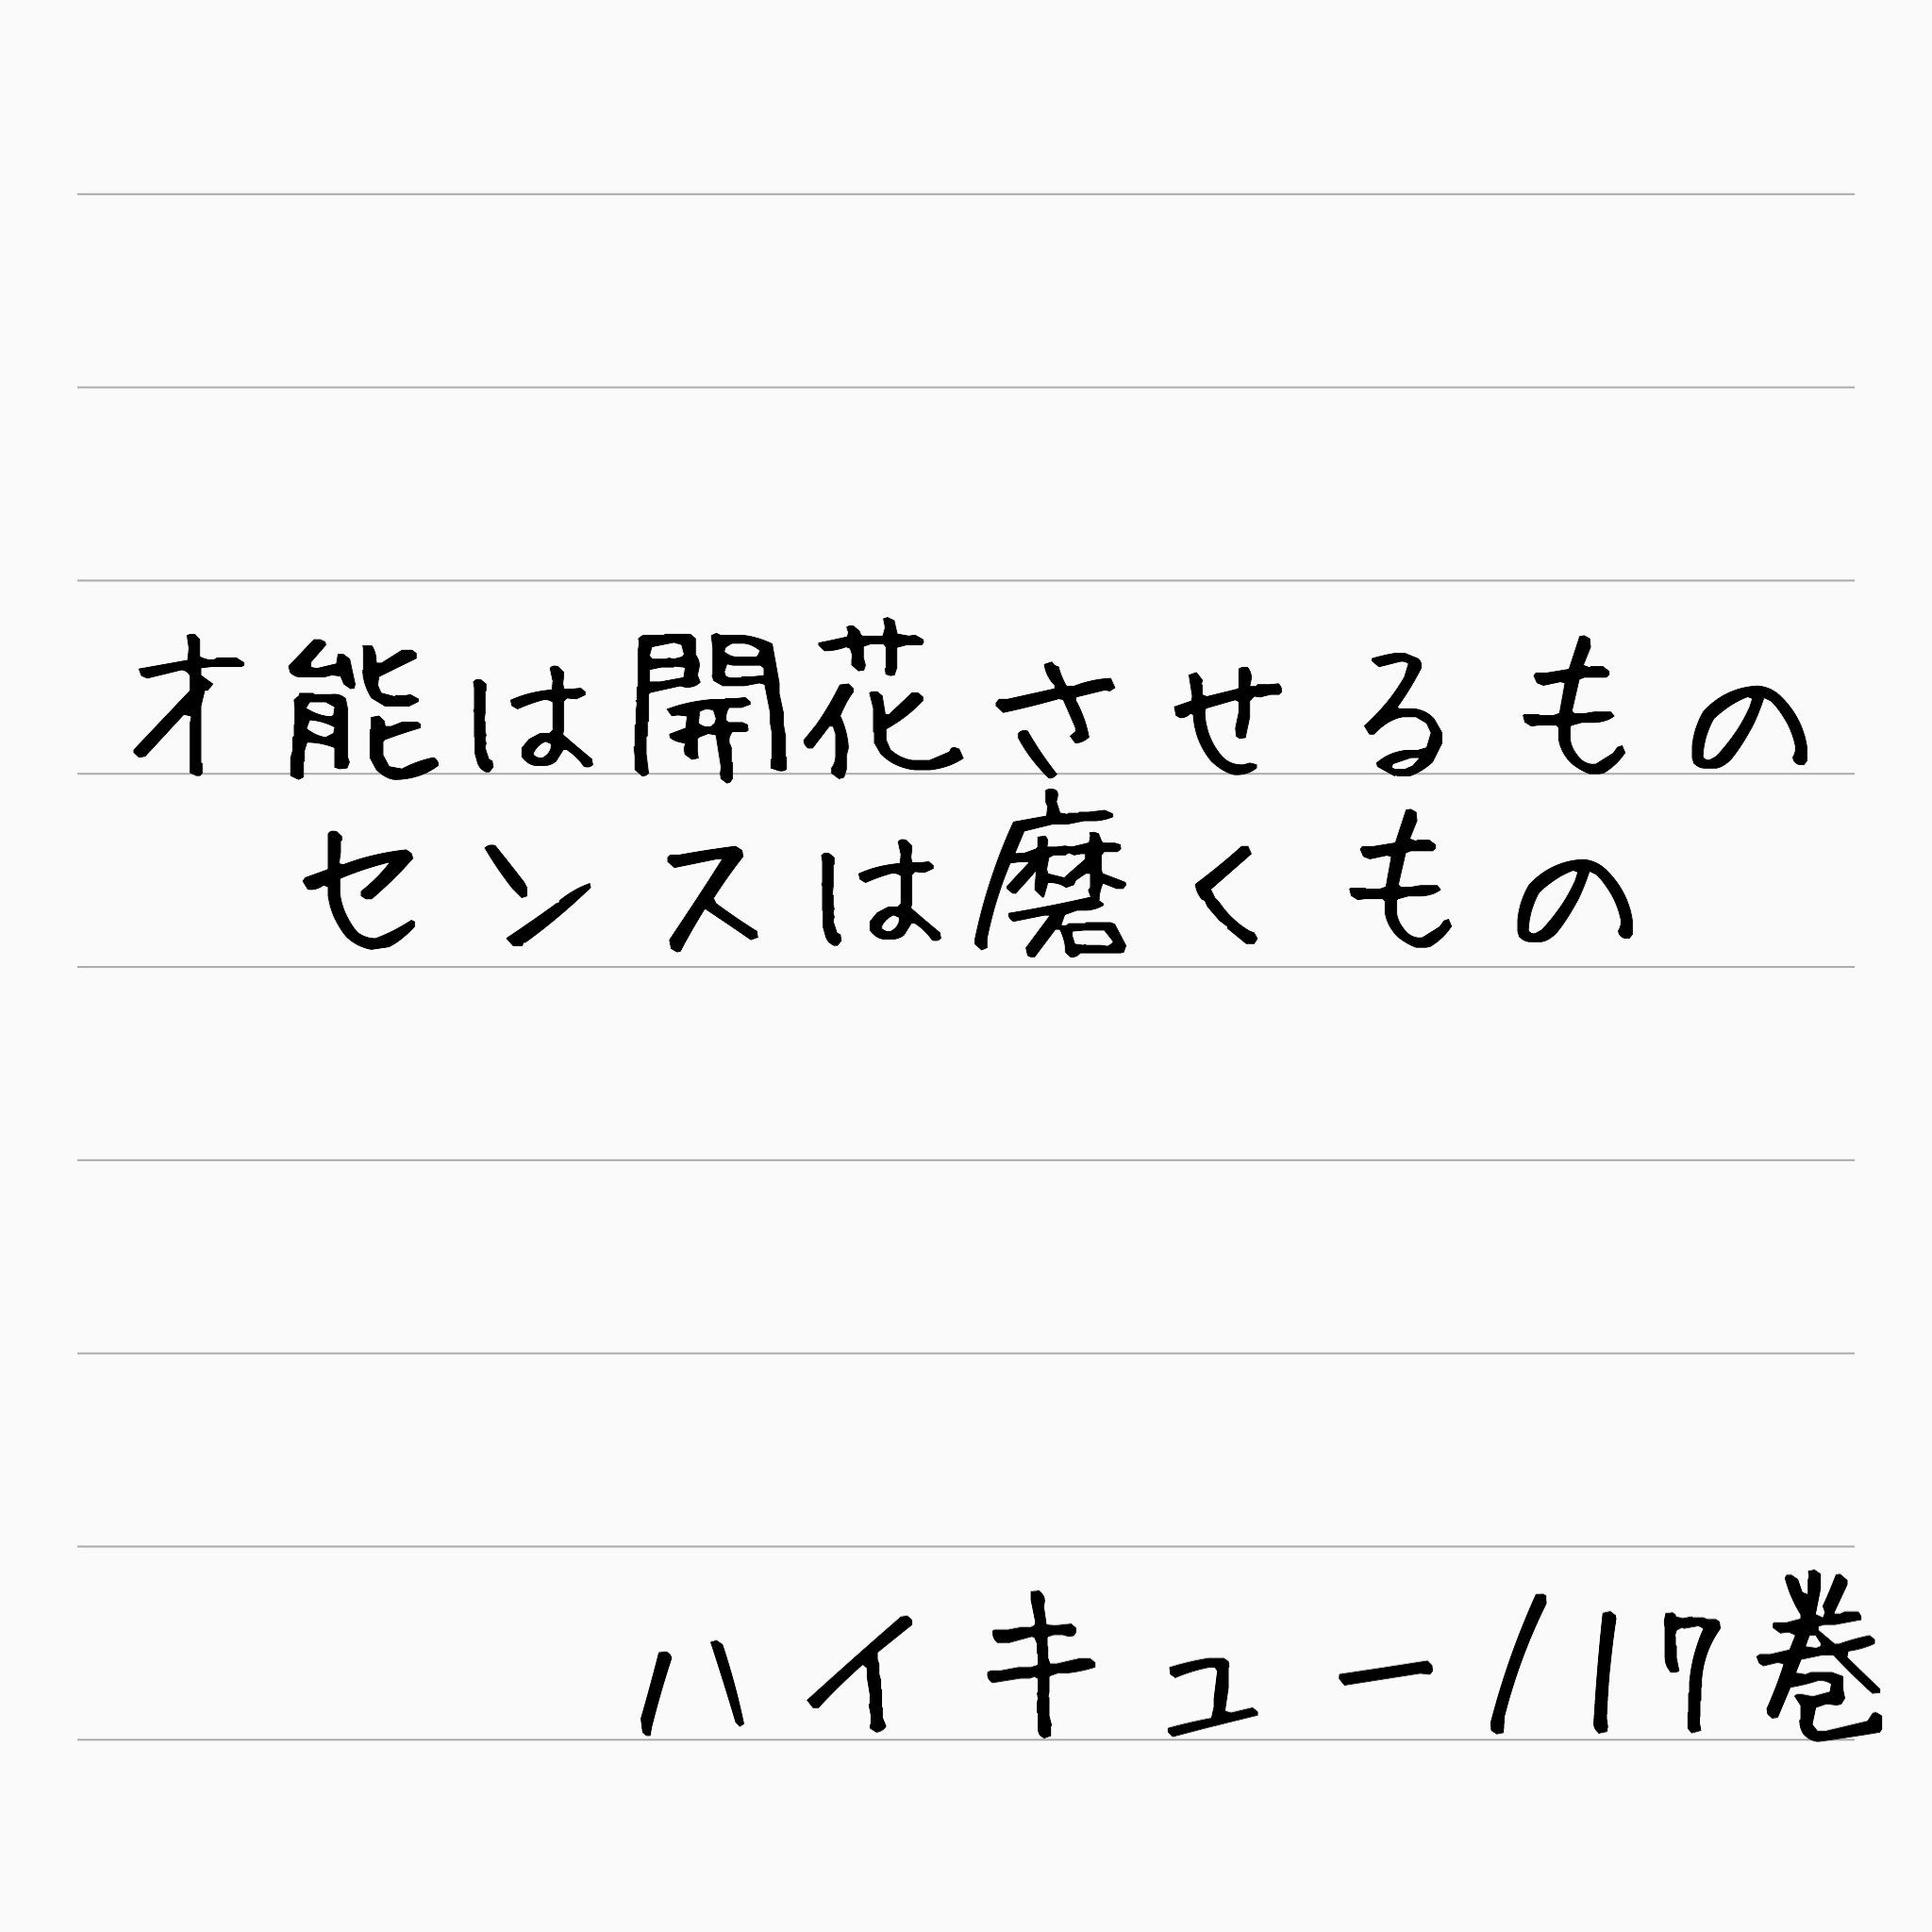 才能は開花させるもの
センスは磨くもの
ハイキュー/17巻